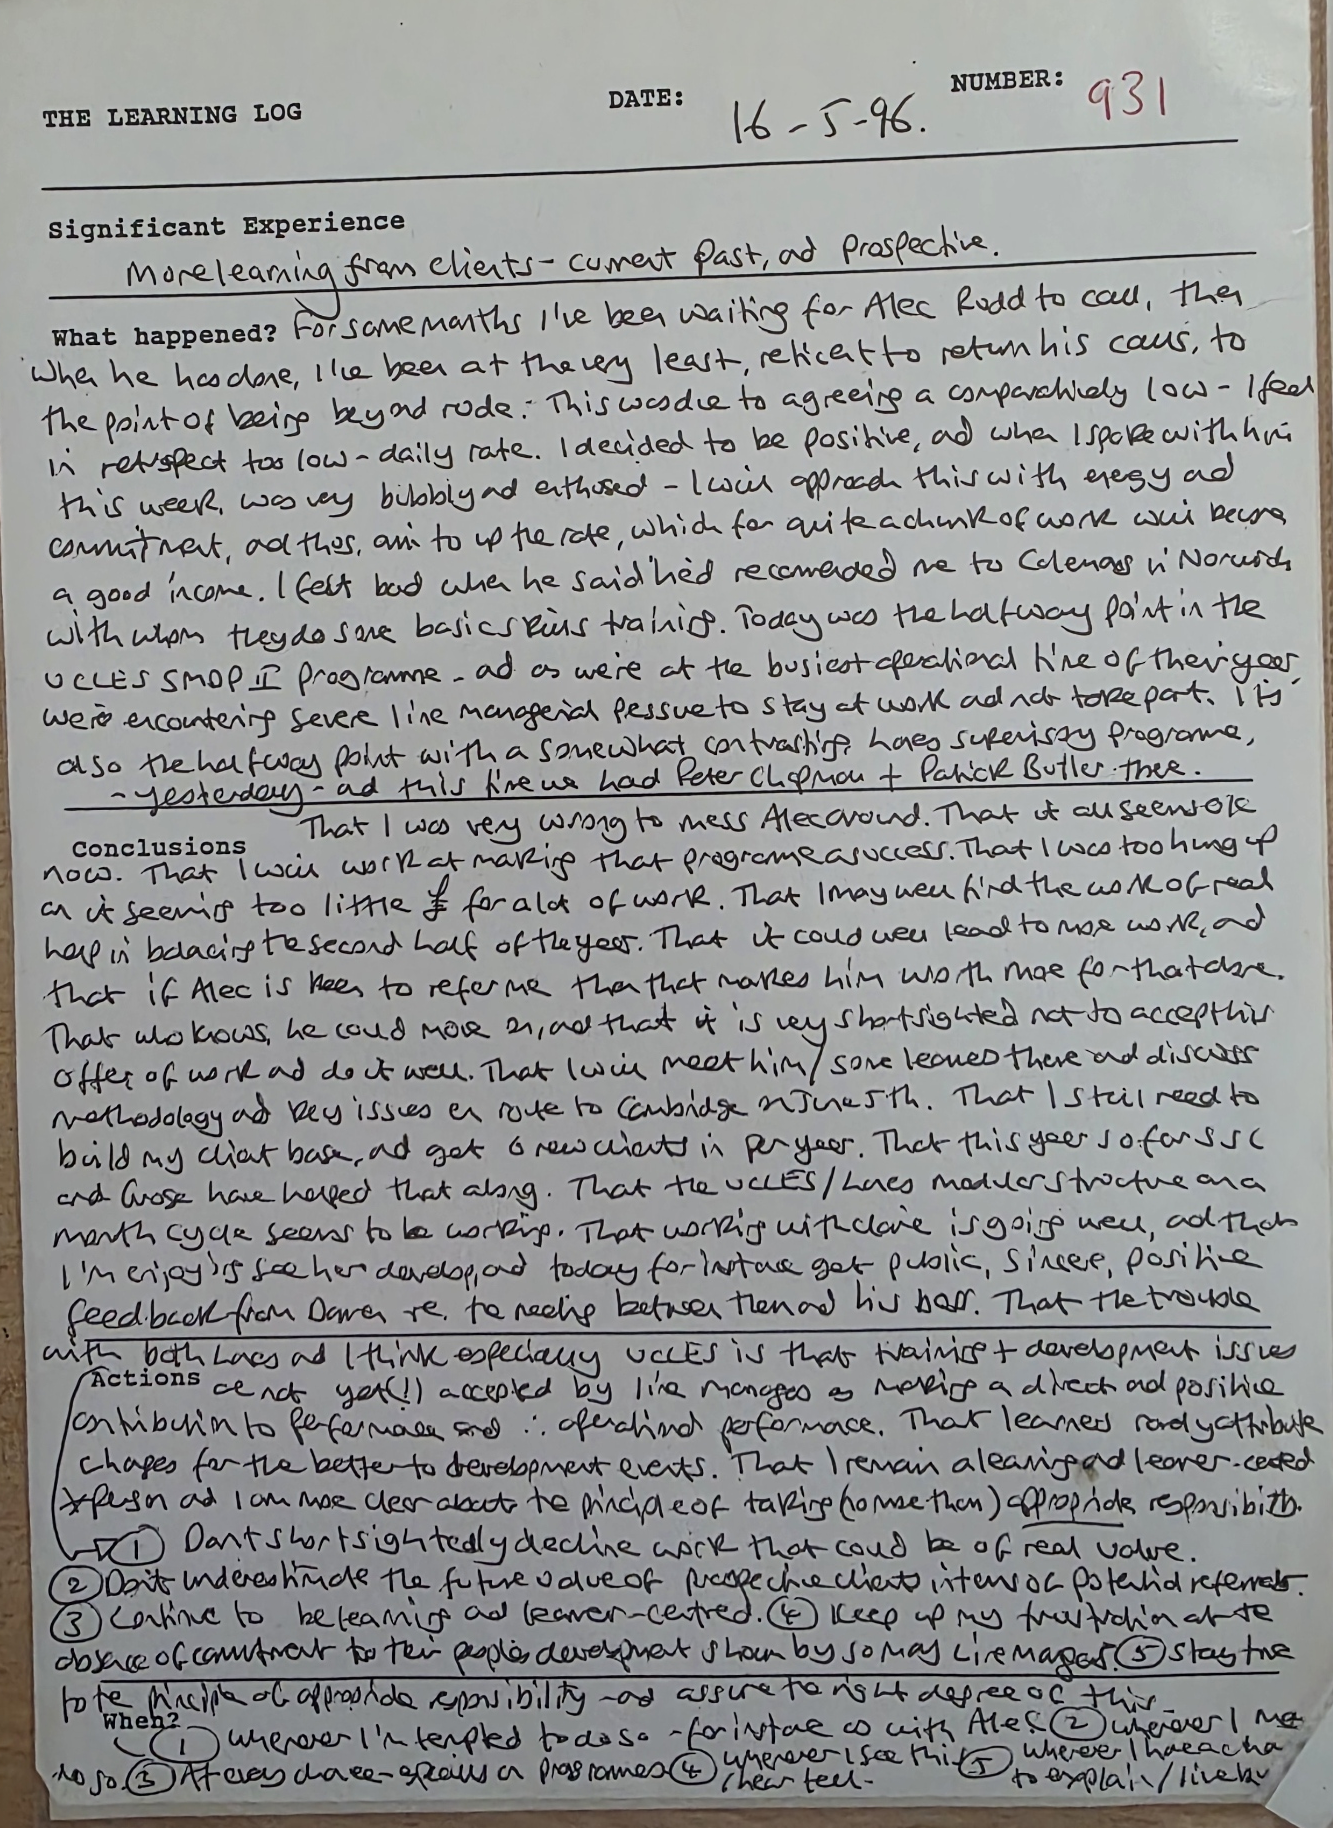 THE LEARNING LOG DATE: 16-5-96. NUMBER: 931
Significant Experience
More learning from clients - current past, and prospective.
What happened? For some months I've been waiting for Alec Rudd to call, then
when he has done, I've been at the very least, reticent to return his calls, to
the point of being beyond rude. This was due to agreeing a comparatively low - I feel
in retrospect too low - daily rate. I decided to be positive, and when I spoke with him
this week, was very bubbly and enthused - I will approach this with energy and
commitment, and thus, aim to up the rate, which for quite a chunk of work will become
a good income. I felt bad when he said he'd recommended me to in Norwich
with whom they do some basic skills training. Today was the halfway point in the
UCLES SMDP II programme - and as we're at the busiest operational time of their year,
we're encountering severe line managerial pressure to stay at work and not take part. It is
also the halfway point with a somewhat contrasting supervisory programme,
- yesterday - and this time we had Peter Chapman + Patrick Butler there.
Conclusions That I was very wrong to mess Alec around. That it all seems OK
now. That I will work at making that programme a success. That I was too hung up
on it seeming too little £ for a lot of work. That I may well find the work of real
help in balancing the second half of the year. That it could well lead to more work, and
that if Alec is keen to refer me then that makes him worth more for that alone.
That who knows, he could move on, and that it is very shortsighted not to accept this
offer of work and do it well. That I will meet him/some learners there and discuss
methodology and key issues en route to Cambridge on June 5th. That I still need to
build my client base, and get 6 new clients in per year. That this year so far SSC
and have helped that along. That the UCLES/ modular structure on a
month cycle seems to be working. That working with Claire is going well, and that
I'm enjoying see her develop, and today for instance get public, sincere, positive
feedback from Darren re. the meeting between them and his boss. That the trouble
with both and I think especially UCLES is that training + development issues
Actions are not yet(!) accepted by line managers as making a direct and positive
contribution to performance and ∴ operational performance. That learners rarely attribute
changes for the better to development events. That I remain a learning and learner-centred
*person and I am more clear about the principle of taking (no more than) appropriate responsibility.
① Don't shortsightedly decline work that could be of real value.
② Don't underestimate the future value of prospective clients in terms of potential referrals.
③ Continue to be learning and learner-centred. ④ Keep up my frustration at the
absence of commitment to their people's development shown by so many Line Managers. ⑤ Stay true
to the principle of appropriate responsibility - and assure the right degree of this.
When? ① whenever I'm tempted to do so - for instance as with Alec. ② whenever I
do so. ③ At every chance - especially on programmes ④ whenever I see this/hear tell. ⑤ wherever I have a cha
to explain/live by